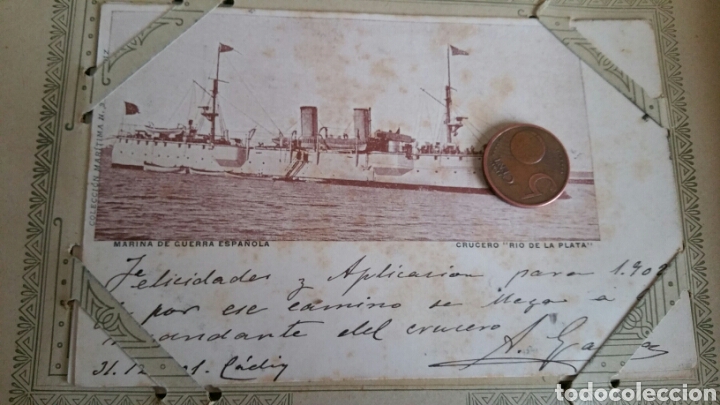 COLECCIÓN MARÍTIMA
MARINA DE GUERRA ESPAÑOLA
CRUCERO "RIO DE LA PLATA"
Felicidades y Aplicacion para 1.902
por ese camino se llega á
comandante del crucero
31.12 Cádiz
todocoleccion